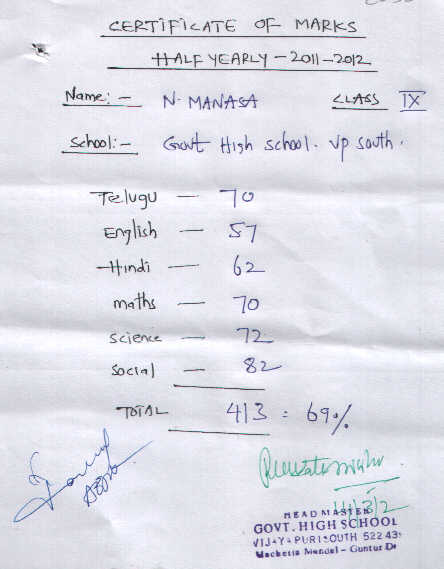 CERTIFICATE OF MARKS
HALF YEARLY - 2011-2012
Name: - N. MANASA CLASS IX
School: - Govt High school. Vp south.
Telugu - 70
English - 57
Hindi - 62
maths - 70
science - 72
social - 82
TOTAL 413 = 69%
HEADMASTER
GOVT. HIGH SCHOOL
VIJAYAPURI SOUTH 522 43
Macherla Mandal - Guntur Dt